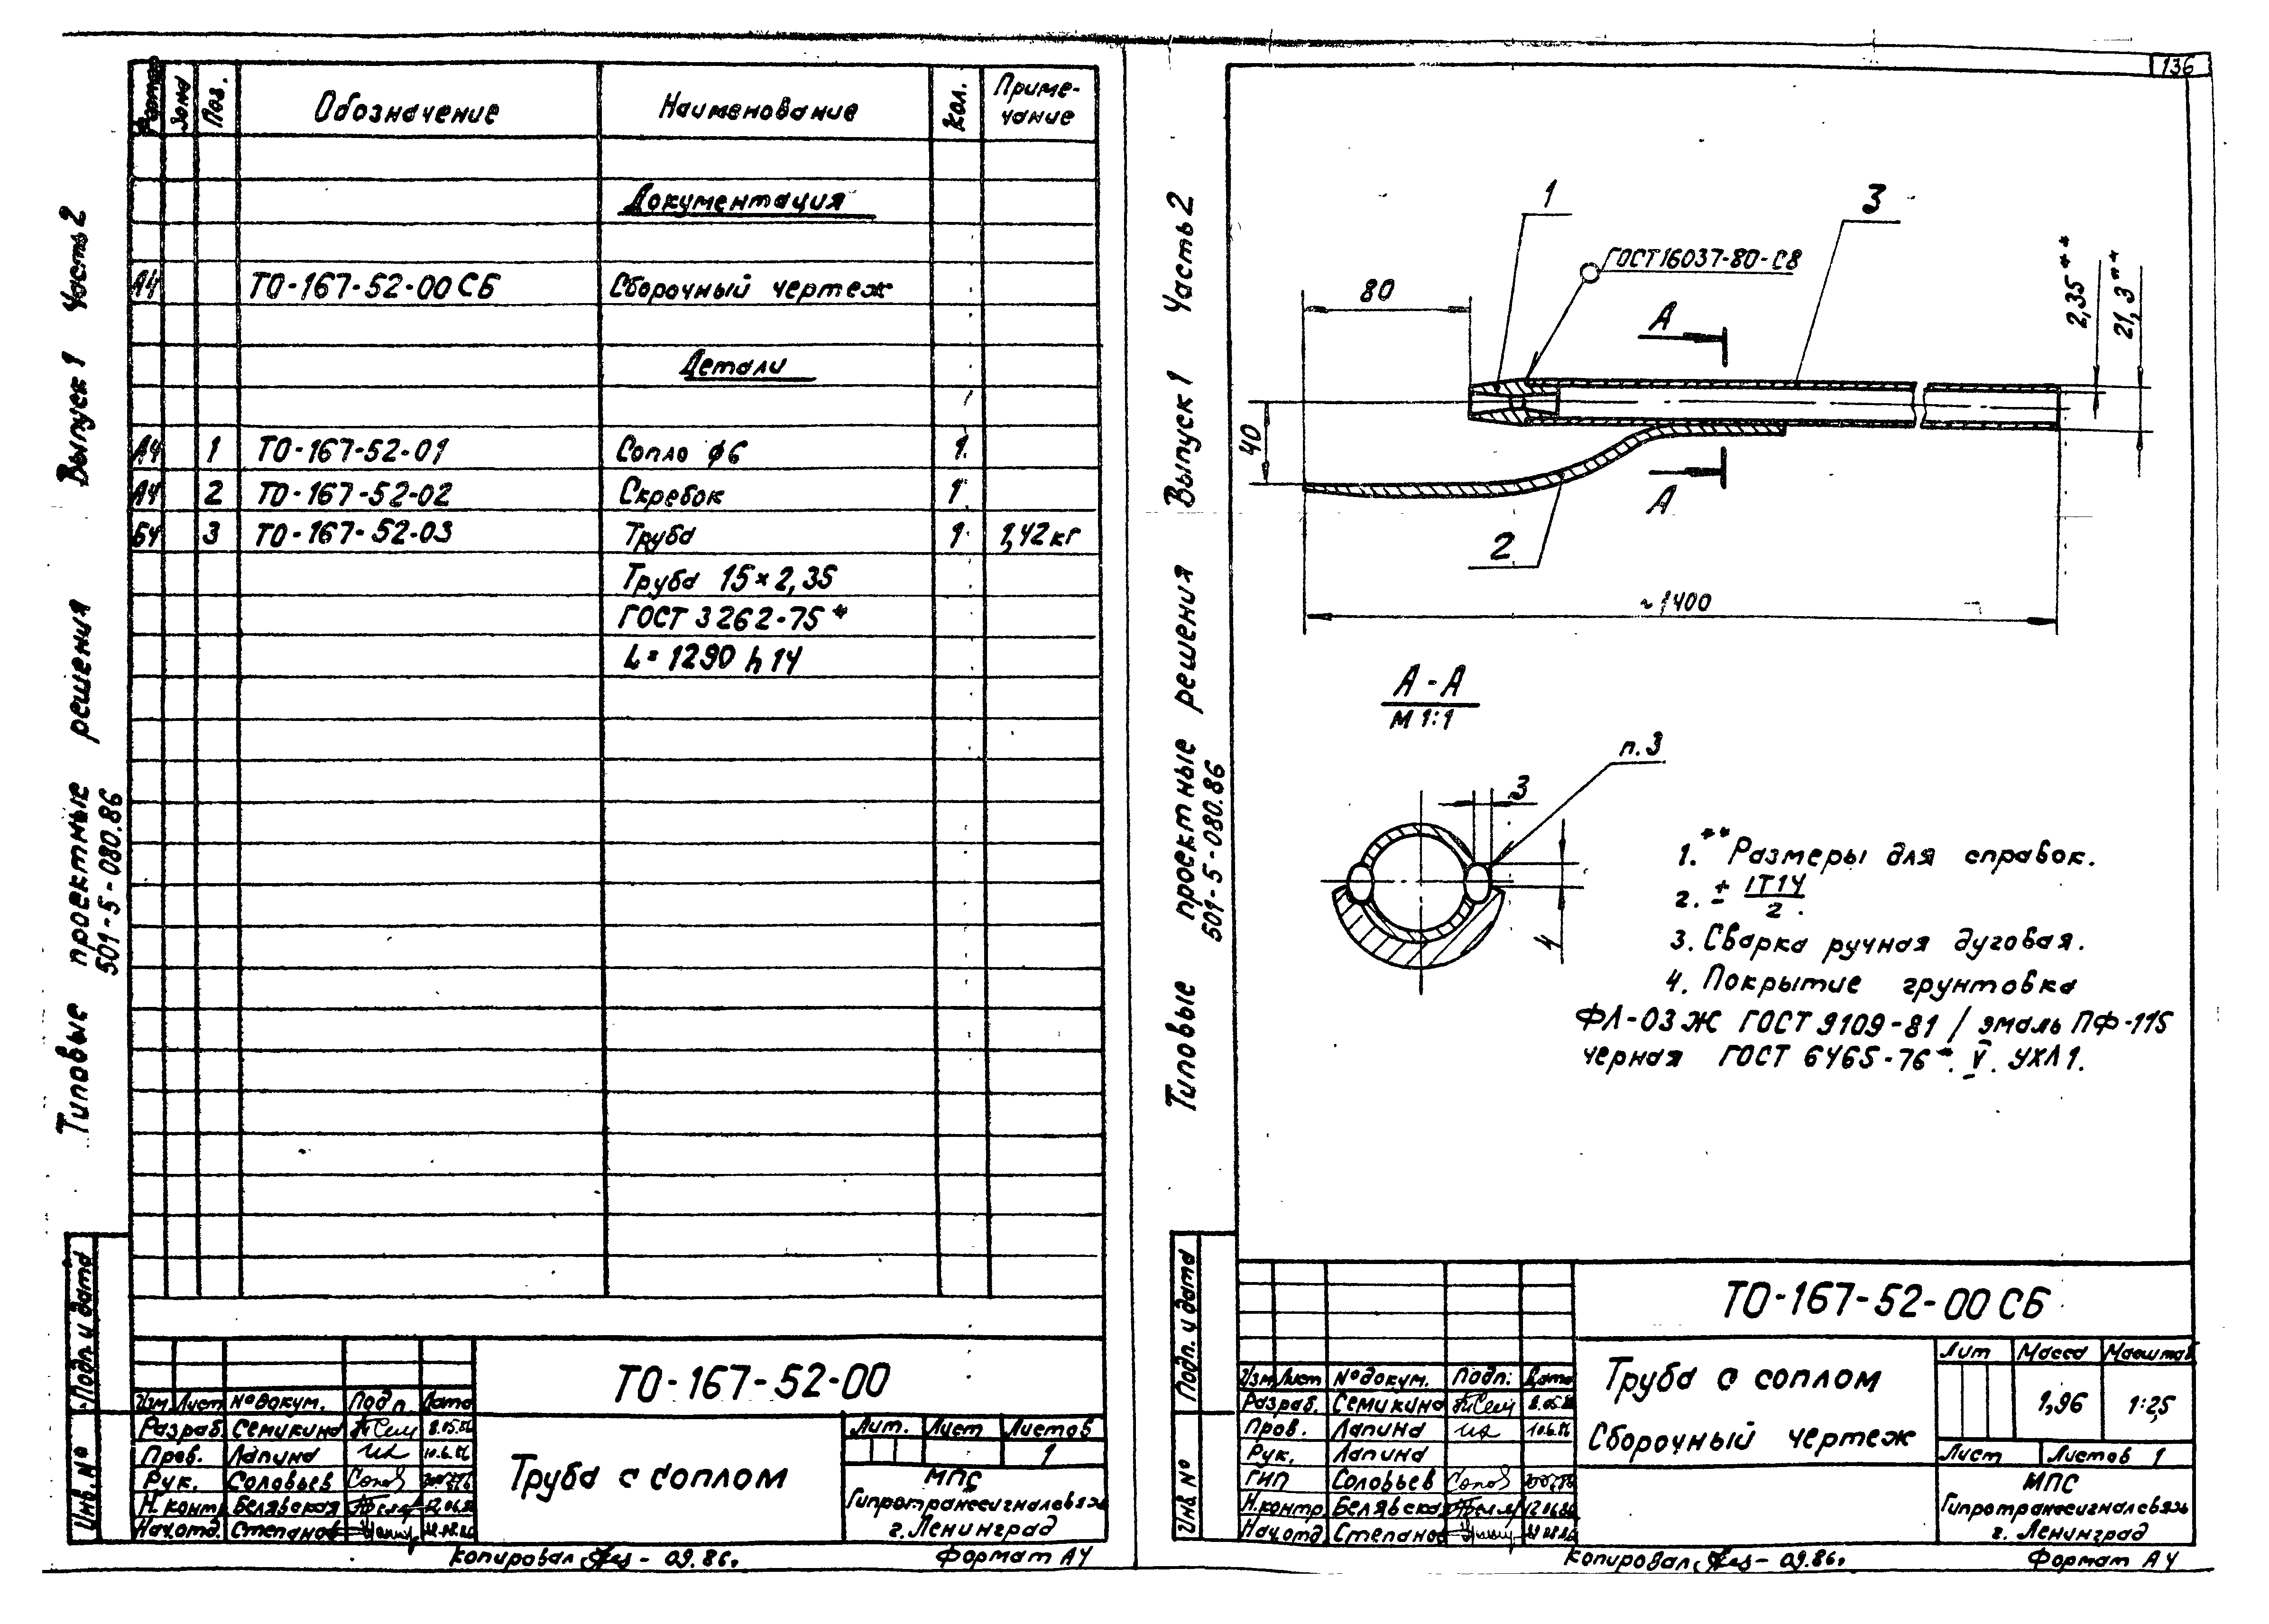 Формат Зона Поз. Обозначение Наименование Кол. Приме-
чание
Документация
А4 ТО-167-52-00 СБ Сборочный чертеж
Детали
А4 1 ТО-167-52-01 Сопло ϕ6 1
А4 2 ТО-167-52-02 Скребок 1
БЧ 3 ТО-167-52-03 Труба 1 1,42 кг
Труба 15×2,35
ГОСТ 3262-75*
L=1290 h14
Типовые проектные решения Выпуск 1 Часть 2
501-5-080.86
Подп. и дата
Инв. №
ТО-167-52-00
Изм Лист № докум. Подп Дата
Разраб. Семикина 8.05.86
Пров. Лапина 10.6.86
Рук. Соловьев
Н.контр. Белявская 12.06.86
Нач.отд. Степанов
Труба с соплом
Лит. Лист Листов
1
МПС
Гипротранссигналсвязь
г. Ленинград
Копировал - 09.86г. Формат А4
136
Типовые проектные решения Выпуск 1 Часть 2
501-5-080.86
1
3
ГОСТ 16037-80-С8
80
А
2,35**
21,3**
40
А
2
~1400
А-А
М 1:1
п.3
3
4
1.** Размеры для справок.
2. ± IT14
2.
3. Сварка ручная дуговая.
4. Покрытие грунтовка
ФЛ-03Ж ГОСТ 9109-81 / эмаль ПФ-115
черная ГОСТ 6465-76*. V. УХЛ1.
Подп. и дата
Инв. №
ТО-167-52-00 СБ
Изм Лист № докум. Подп. Дата
Разраб. Семикина 8.05.86
Пров. Лапина 10.6.86
Рук. Лапина
ГИП Соловьев
Н.контр. Белявская 12.06.86
Нач.отд. Степанов
Труба с соплом
Сборочный чертеж
Лит Масса Масштаб
1,96 1:2,5
Лист Листов 1
МПС
Гипротранссигналсвязь
г. Ленинград
Копировал - 09.86г. Формат А4